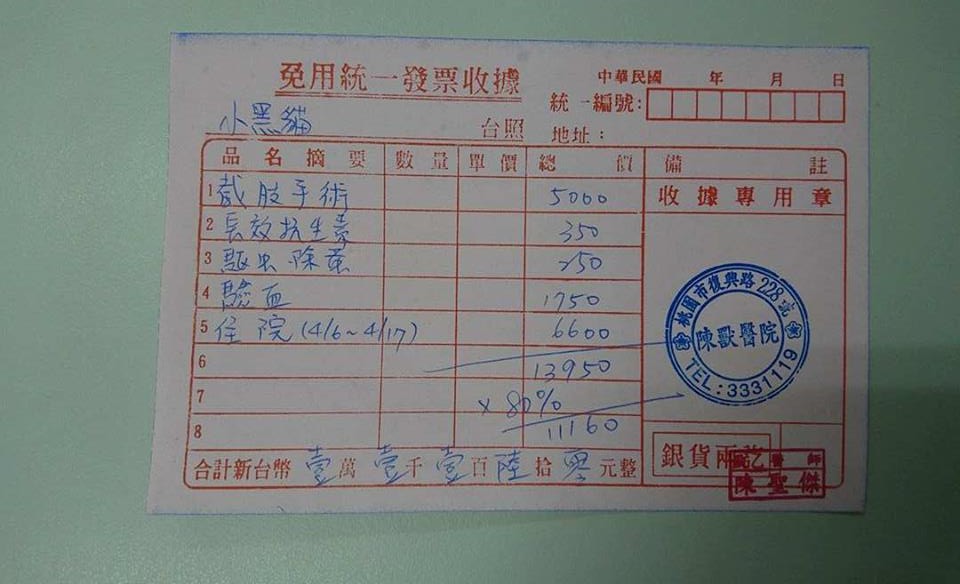 免用統一發票收據
中華民國 年 月 日
統一編號:
小黑貓 台照
地址:
品名摘要 數量 單價 總價 備註
1 截肢手術 5000 收據專用章
2 長效抗生素 350
3 驅虫除蚤 250
4 驗血 1750
5 住院(4/6~4/17) 6600
6 13950
7 ×80%
8 11160
桃園市復興路228號
陳獸醫院
TEL:3331119
合計新台幣 壹萬壹千壹百陸拾零元整
銀貨兩訖
醫師
陳聖傑